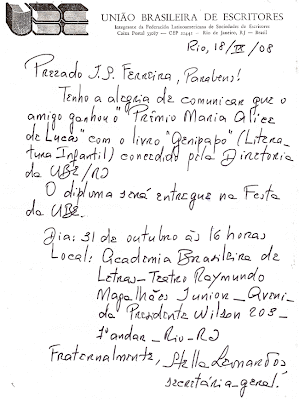 UBE
UNIÃO BRASILEIRA DE ESCRITORES
Integrantes da Federación Latinoamericana de Sociedades de Escritores
Caixa Postal 33087 — CEP 22442 — Rio de Janeiro, RJ — Brasil
Rio, 18/IX/08
Prezado J.S. Ferreira, Parabens!
Tenho a alegria de comunicar que o
amigo ganhou o "Prêmio Maria Alice
de Lucas" com o livro "Genipapo" (Litera-
tura Infantil) concedido pela Diretoria
da UBE/RJ
O diploma será entregue na Festa
da UBE.
Dia: 31 de outubro às 16 horas
Local: Academia Brasileira de
Letras-Teatro Raymundo
Magalhães Junior-Aveni-
da Presidente Wilson 203-
1º andar-Rio-RJ
Fraternalmente, Stella Leonardos
secretária-geral.